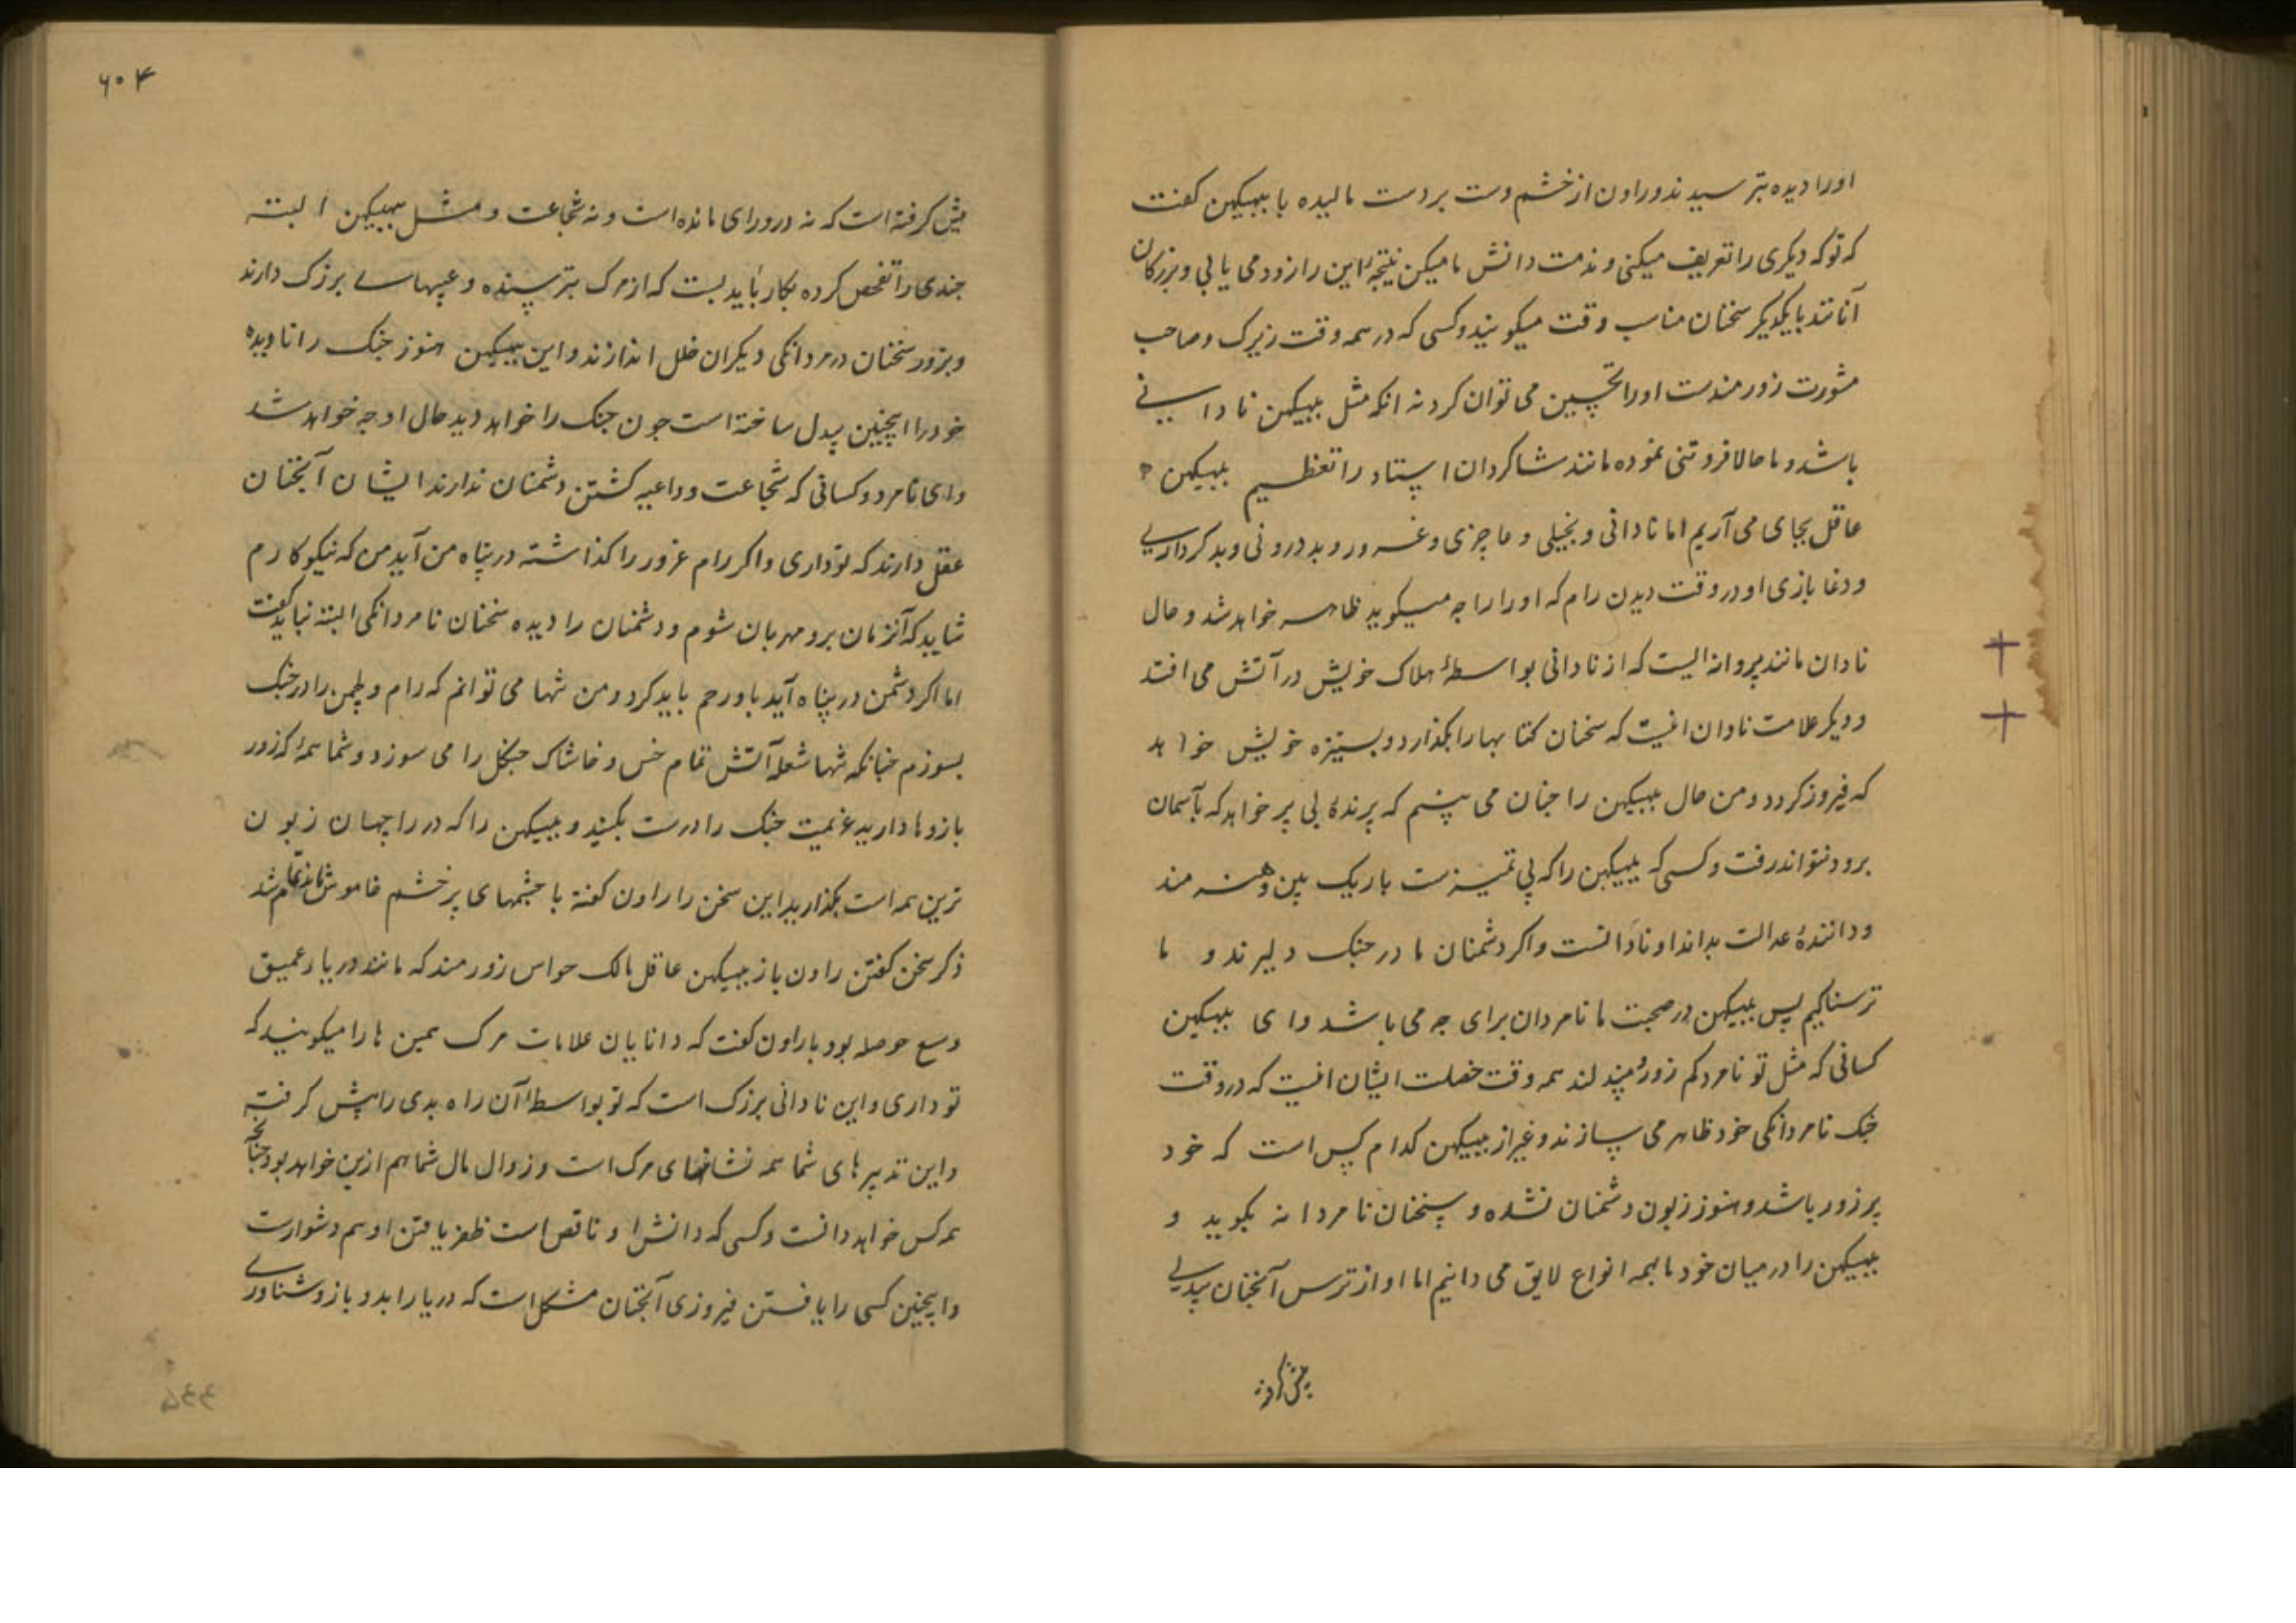 اورا دیده بترسیدند و راون از خشم دست بردست مالیده با ببیکهن کفت
که توکه دیکری را تعریف میکنی و مذمت دانش ما میکن نتیجهٔ این را زود می یابی و بزرکان
آنانند بایکدیکر سخنان مناسب وقت میکویند و کسی که در همه وقت زیرک و صاحب
مشورت زورمندست اورا تحسین می توان کرد نه انکه مثل ببیکهن نادانی
باشد و ما حالا فروتنی نموده مانند شاکردان استاد را تعظیم ببیکهن
عاقل بجای می آریم اما نادانی و بخیلی و عاجزی و غرور و بد درونی و بدکرداری
و دغا بازی او در وقت دیدن رام که اورا راجه میکوید ظاهر خواهد شد و حال
نادان مانند پروانه ایست که از نادانی بواسطهٔ هلاک خویش در آتش می افتد
و دیکر علامت نادان اینست که سخنان کتابها را بکذارد و بستیزه خویش خواهد
که فیروز کردد و من حال ببیکهن را جنان می بینم که پرندهٔ بی پر خواهد که بآسمان
برود نتواند رفت و کسی که ببیکهن را که بی تمیزست باریک بین و هنرمند
و دانندهٔ عدالت بداند او نادانست و اکر دشمنان ما در جنک دلیرند و ما
ترسناکیم پس ببیکهن در صحبت ما نامردان برای جه می باشد و ای ببیکهن
کسانی که مثل تو نامرد کم زور و بیدلند همه وقت خصلت ایشان اینست که در وقت
جنک نامردانکی خود ظاهر می سازند و غیر از ببیکهن کدام کس است که خود
پرزور باشد و هنوز زبون دشمنان نشده و سخنان نامردانه بکوید و
ببیکهن را در میان خود ما بهمه انواع لایق می دانیم اما او از ترس آنجنان بیدلی
پیش کرفته
۶۰۴
پیش کرفته است که نه درو رای مانده است و نه شجاعت و مثل ببیکهن البته
جندی را تفحص کرده بکار باید بست که از مرک بترسنده و عیبهای بزرک دارند
و بزور سخنان در مردانکی دیکران خلل اندازند و این ببیکهن هنوز جنک را نادیده
خود را اینچنین بیدل ساخته است جون جنک را خواهد دید حال او جه خواهد شد
و ای نامرد و کسانی که شجاعت و داعیه کشتن دشمنان ندارند ایشان آنجنان
عقل دارند که تو داری و اکر رام غرور را کذاشته در پناه من آید من که نیکو کارم
شاید که آنزمان برو مهربان شوم و دشمنان را دیده سخنان نامردانکی البته نباید کفت
اما اکر دشمن در پناه آید باو رحم باید کرد و من تنها می توانم که رام و لچمن را در جنک
بسوزم جنانکه تنها شعلهٔ آتش تمام خس و خاشاک جنکل را می سوزد و شما همه که زور
بازوها دارید عزیمت جنک را درست بکنید و ببیکهن را که در راجهان زبون
ترین همه است بکذارید این سخن را راون کفته با جشمهای پر خشم خاموش ماند تمام شد
ذکر سخن کفتن راون باز ببیکهن عاقل مالک حواس زورمند که مانند دریا عمیق
وسع حوصله بود با راون کفت که دانایان علامات مرک همین ها را میکویند که
تو داری و این نادانی بزرک است که تو بواسطهٔ آن راه بدی را پیش کرفته
و این تدبیرهای شما همه نشانهای مرک است و زوال مال شما هم ازین خواهد بود جنانچه
همه کس خواهد دانست و کسی که دانش او ناقص است ظفر یافتن او هم دشوارست
و اینچنین کسی را یافتن فیروزی آنجنان مشکل است که دریا را بدو بازو شناوری
۵۴۴